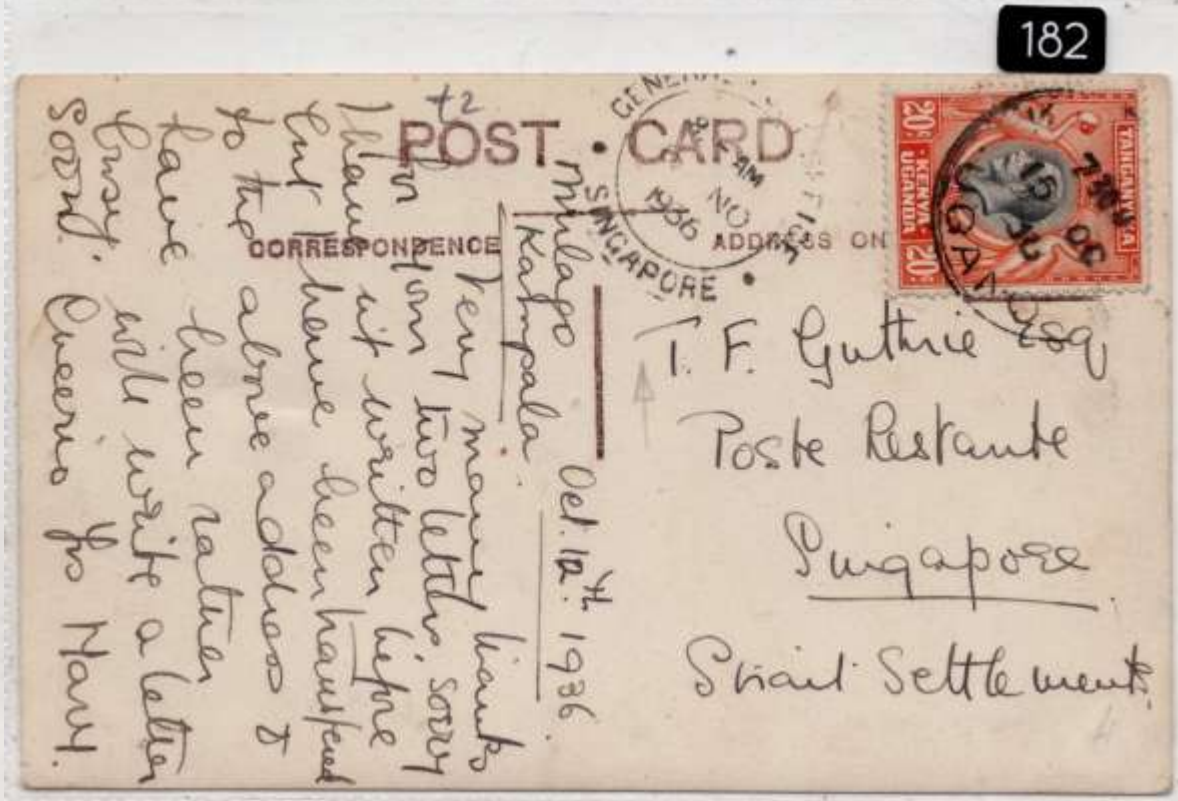 182
POST CARD
CORRESPONDENCE
ADDRESS ON
GENERAL OFFICE
AM
NO
1936
SINGAPORE
TANGANYIKA
KENYA·
UGANDA
20c
20c
15 OC
36
UGANDA
T. F. Guthrie Esq
Poste Restante
Singapore
Strait Settlements.
Mulago Oct. 12th 1936.
Kampala.
Very many thanks
for your two letters. Sorry
I haven't written before
but I have been transferred
to the above address &
have been rather
busy. will write a letter
soon. Cheerio Yrs Mary.